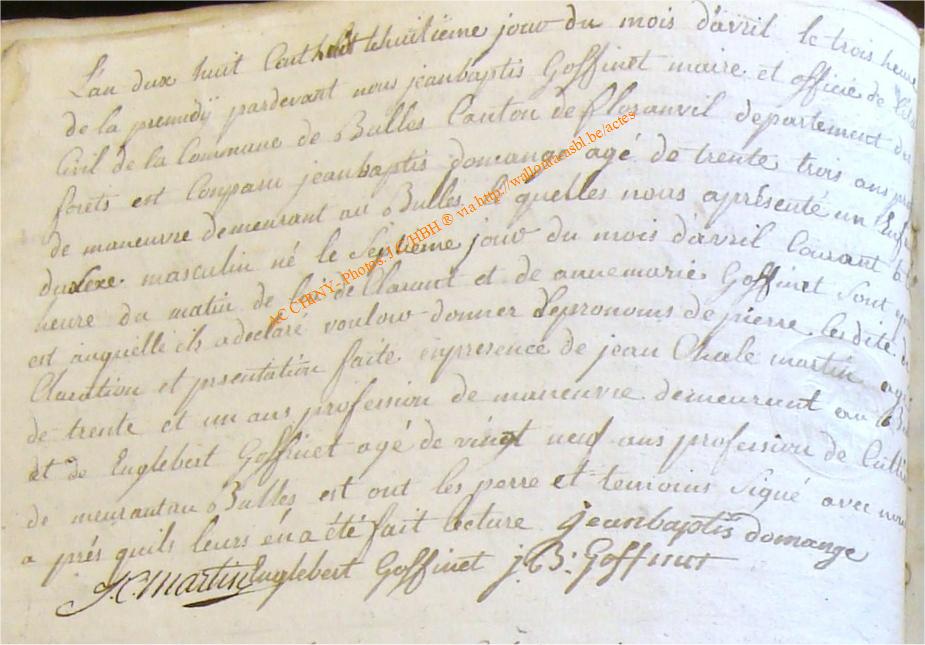 L'an dix huit Cent huit le huitième jour du mois d'avril le trois heure
de la premidÿ pardevant nous jeanbaptis Goffinet maire et officié de l'éta
Civil de la Commune de Bulles Canton de floranvil departement des
forêts est Comparu jeanbaptis domange agé de trente trois ans prof
de maneuvre demeurant au Bulles le quelles nous apresenté un Enf
du Sexe masculin né le Septième jour du mois d'avril Courant
heure du matin de lui de Clarant et de annemarie Goffinet Son
est auquelle ils a declaré vouloir donner le pronoms de pierre les dite de
Claration et presentation faite enpresence de jean Charle martin agé
de trente et un ans profession de maneuvre demeurant au Bu
et de Englebert Goffinet agé de vingt neuf ans profession de Cultiv
de meurantau Bulles est ont les perre et temoins Signé avec nous
a prés quils leurs én a été fait lecture jeanbaptis domange
J.C. martin Englebert Goffinet j. B: Goffinet
AC CHINY, Photos: J.C/HBH ® via http://walloniaasbl.be/actes